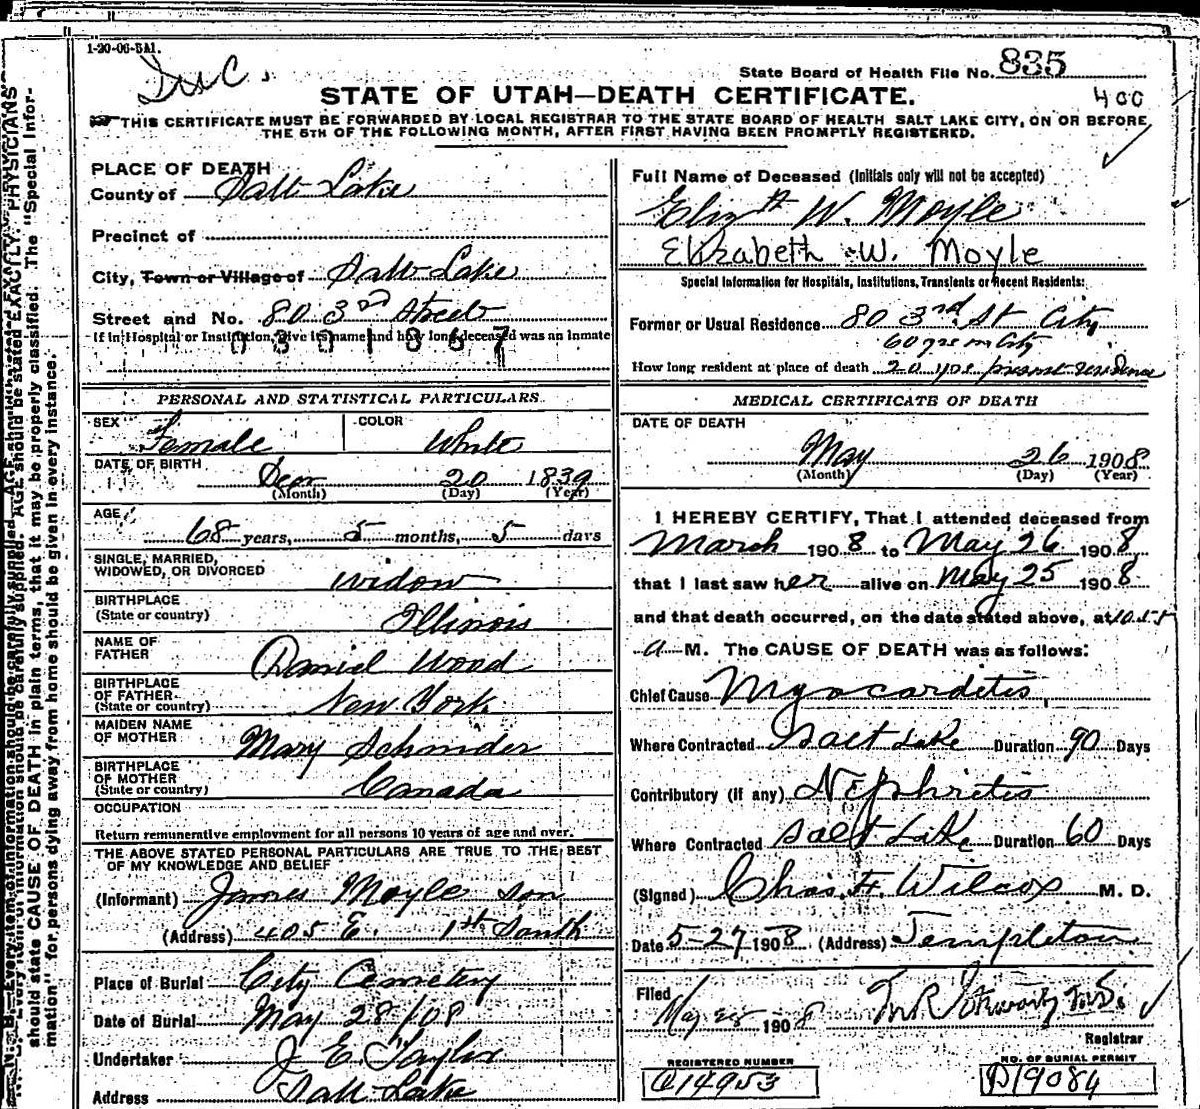 1-20-06-5M.
State Board of Health File No. 835
STATE OF UTAH—DEATH CERTIFICATE.
400
THIS CERTIFICATE MUST BE FORWARDED BY LOCAL REGISTRAR TO THE STATE BOARD OF HEALTH SALT LAKE CITY, ON OR BEFORE
THE 5TH OF THE FOLLOWING MONTH, AFTER FIRST HAVING BEEN PROMPTLY REGISTERED.
PLACE OF DEATH
County of Salt Lake
Precinct of
City, Town or Village of Salt Lake
Street and No. 80 3rd Street
If in Hospital or Institution, give its name and how long deceased was an inmate
0301867
PERSONAL AND STATISTICAL PARTICULARS.
SEX Female
COLOR White
DATE OF BIRTH Dec 20 1839
(Month) (Day) (Year)
AGE 68 years, 5 months, 5 days
SINGLE, MARRIED,
WIDOWED, OR DIVORCED widow
BIRTHPLACE
(State or country) Illinois
NAME OF
FATHER Daniel Wood
BIRTHPLACE
OF FATHER
(State or country) New York
MAIDEN NAME
OF MOTHER Mary Schnider
BIRTHPLACE
OF MOTHER
(State or country) Canada
OCCUPATION
Return remunerative employment for all persons 10 years of age and over.
THE ABOVE STATED PERSONAL PARTICULARS ARE TRUE TO THE BEST
OF MY KNOWLEDGE AND BELIEF
(Informant) James Moyle son
(Address) 405 E. 1st South
Place of Burial City Cemetery
Date of Burial May 28/08
Undertaker J E Taylor
Address Salt Lake
Full Name of Deceased (Initials only will not be accepted)
Elizth W. Moyle
Elizabeth W. Moyle
Special Information for Hospitals, Institutions, Transients or Recent Residents:
Former or Usual Residence 80 3rd St City
60 yrs in City
How long resident at place of death 20 yrs present residence
MEDICAL CERTIFICATE OF DEATH
DATE OF DEATH
May 26 1908
(Month) (Day) (Year)
I HEREBY CERTIFY, That I attended deceased from
March 1908 to May 26 1908
that I last saw her alive on May 25 1908
and that death occurred, on the date stated above, at 10.55
a M. The CAUSE OF DEATH was as follows:
Chief Cause Myocarditis
Where Contracted Salt Lake Duration 90 Days
Contributory (if any) Nephritis
Where Contracted Salt Lake Duration 60 Days
(Signed) Chas. F. Wilcox M. D.
Date 5-27 1908 (Address) Templeton
Filed
May 28 1908
Registrar
REGISTERED NUMBER
14953
NO. OF BURIAL PERMIT
19084
should state CAUSE OF DEATH in plain terms, that it may be properly classified. The "Special Infor-
mation" for persons dying away from home should be given in every instance.